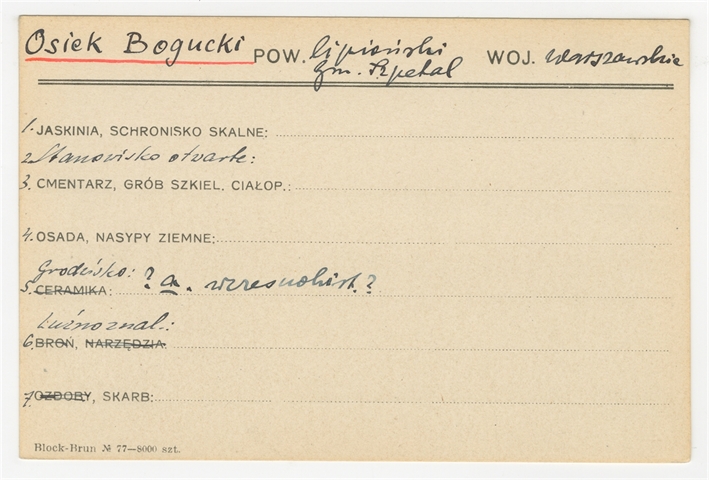 Osiek Bogucki POW. lipieński WOJ. warszawskie
gm. Szpetal
1. JASKINIA, SCHRONISKO SKALNE:
2. Stanowisko otwarte:
3. CMENTARZ, GRÓB SZKIEL. CIAŁOP.:
4. OSADA, NASYPY ZIEMNE:
Grodzisko: ? a. wczesnohist.?
5. CERAMIKA:
Luźno znal.:
6. BROŃ, NARZĘDZIA
7. OZDOBY, SKARB:
Block-Brun № 77—8000 szt.